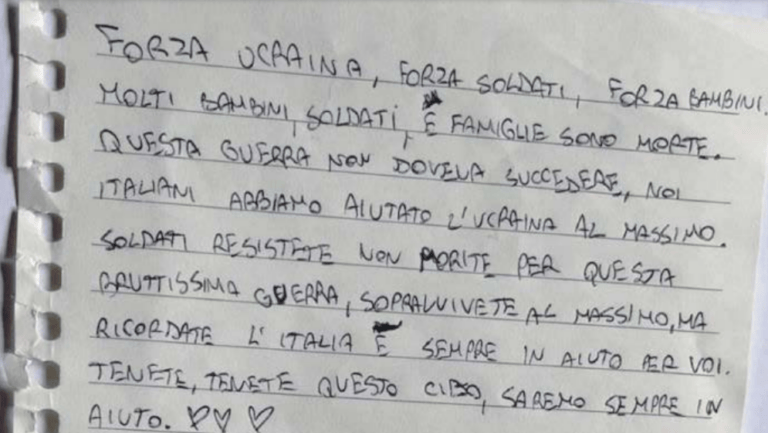 FORZA UCRAINA, FORZA SOLDATI, FORZA BAMBINI.
MOLTI BAMBINI, SOLDATI, E FAMIGLIE SONO MORTE.
QUESTA GUERRA NON DOVEVA SUCCEDERE, NOI
ITALIANI ABBIAMO AIUTATO L'UCRAINA AL MASSIMO.
SOLDATI RESISTETE NON MORITE PER QUESTA
BRUTTISSIMA GUERRA, SOPRAVVIVETE AL MASSIMO, MA
RICORDATE L'ITALIA È SEMPRE IN AIUTO PER VOI.
TENETE, TENETE QUESTO CIBO, SAREMO SEMPRE IN
AIUTO. ♡♡♡